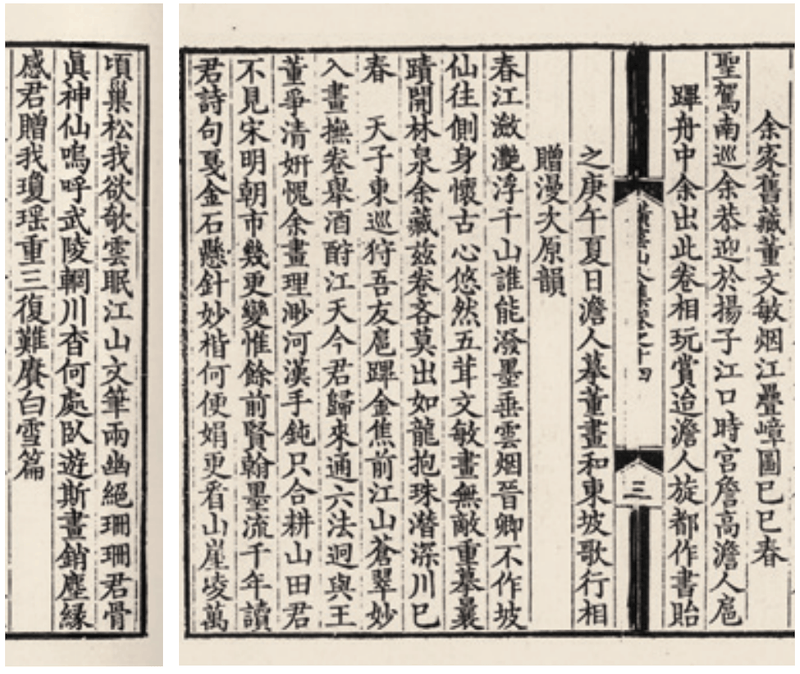 余家舊藏董文敏烟江疊嶂圖己巳春
聖駕南巡余恭迎於揚子江口時宮詹高澹人扈
蹕舟中余出此卷相玩賞迨澹人旋都作書貽
山人集卷之十四
三
之庚午夏日澹人摹董畫和東坡歌行相
贈漫次原韻
春江瀲灩浮千山誰能潑墨垂雲烟晉卿不作坡
仙往側身懷古心悠然五茸文敏畫無敵重摹曩
蹟開林泉余藏兹卷吝莫出如龍抱珠潛深川巳
春 天子東巡狩吾友扈蹕金焦前江山蒼翠妙
入畫撫卷舉酒酹江天今君歸來通六法迥與王
董爭清妍愧余畫理渺河漢手鈍只合耕山田君
不見宋明朝市幾更變惟餘前賢翰墨流千年讀
君詩句戛金石懸針妙楷何便娟更看山崖崚萬
頃巢松我欲欹雲眠江山文筆兩幽絕珊珊君骨
眞神仙嗚呼武陵輞川杳何處臥遊斯畫銷塵緣
感君贈我瓊瑶重三復難賡白雪篇